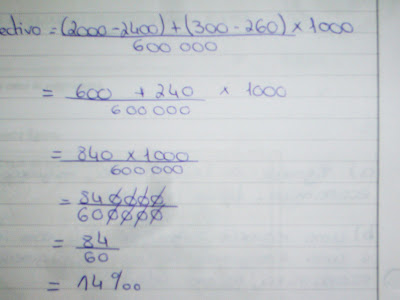 ectivo = (2000 - 2400) + (300 - 260) × 1000
600 000
= 600 + 240 × 1000
600 000
= 840 × 1000
600 000
= 840000
600000
= 84
60
= 14‰